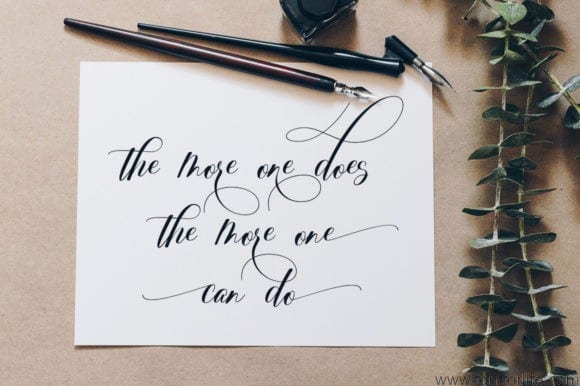 the more one does
the more one
can do